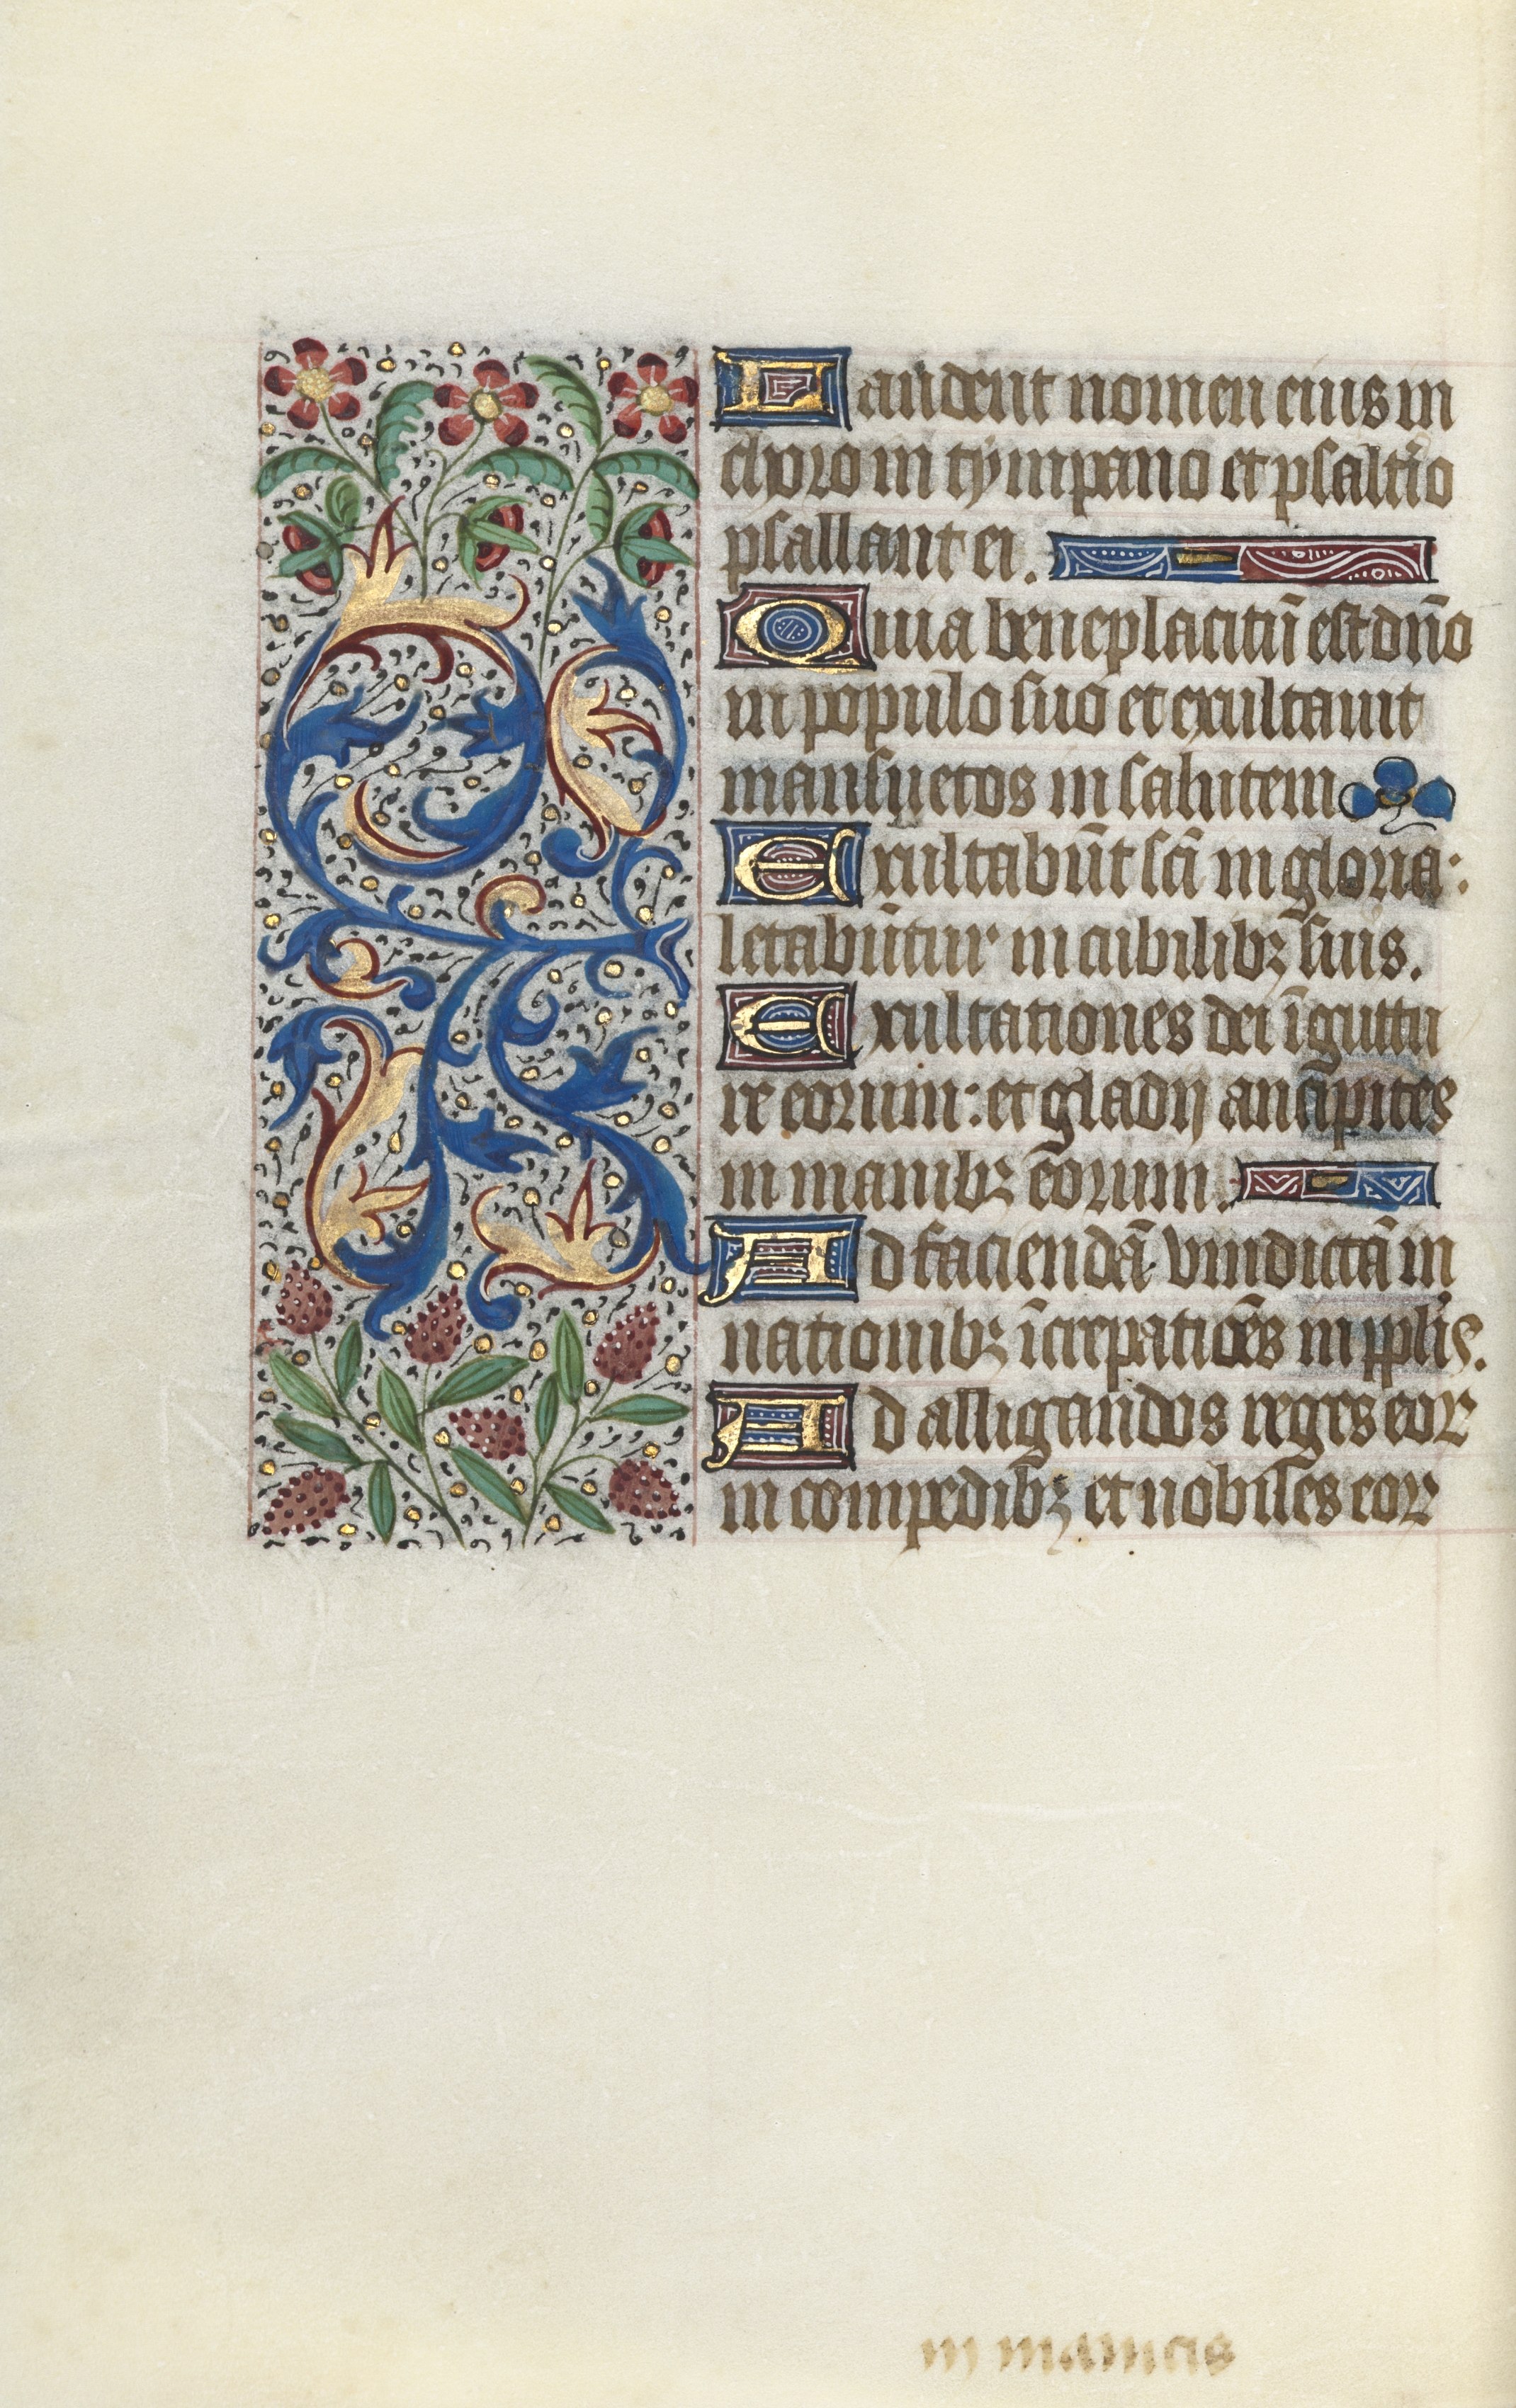 Laudent nomen eius in
choro in tympano et psaltĩo
psallant ei.
Quia beneplacitũ est dño
in populo suo et exultauit
mansuetos in salutem
Exultabũt scĩ in gloria:
letabũtur in cubilibꝫ suis.
Exultationes dei ĩ guttu
re eorum: et gladij ancipites
in manibꝫ eorum.
Ad faciendã vindictã in
nationibꝫ ĩcrepatiões in pplis.
Ad alligandos reges eoꝝ
in compedibꝫ et nobiles eoꝝ
in manicis